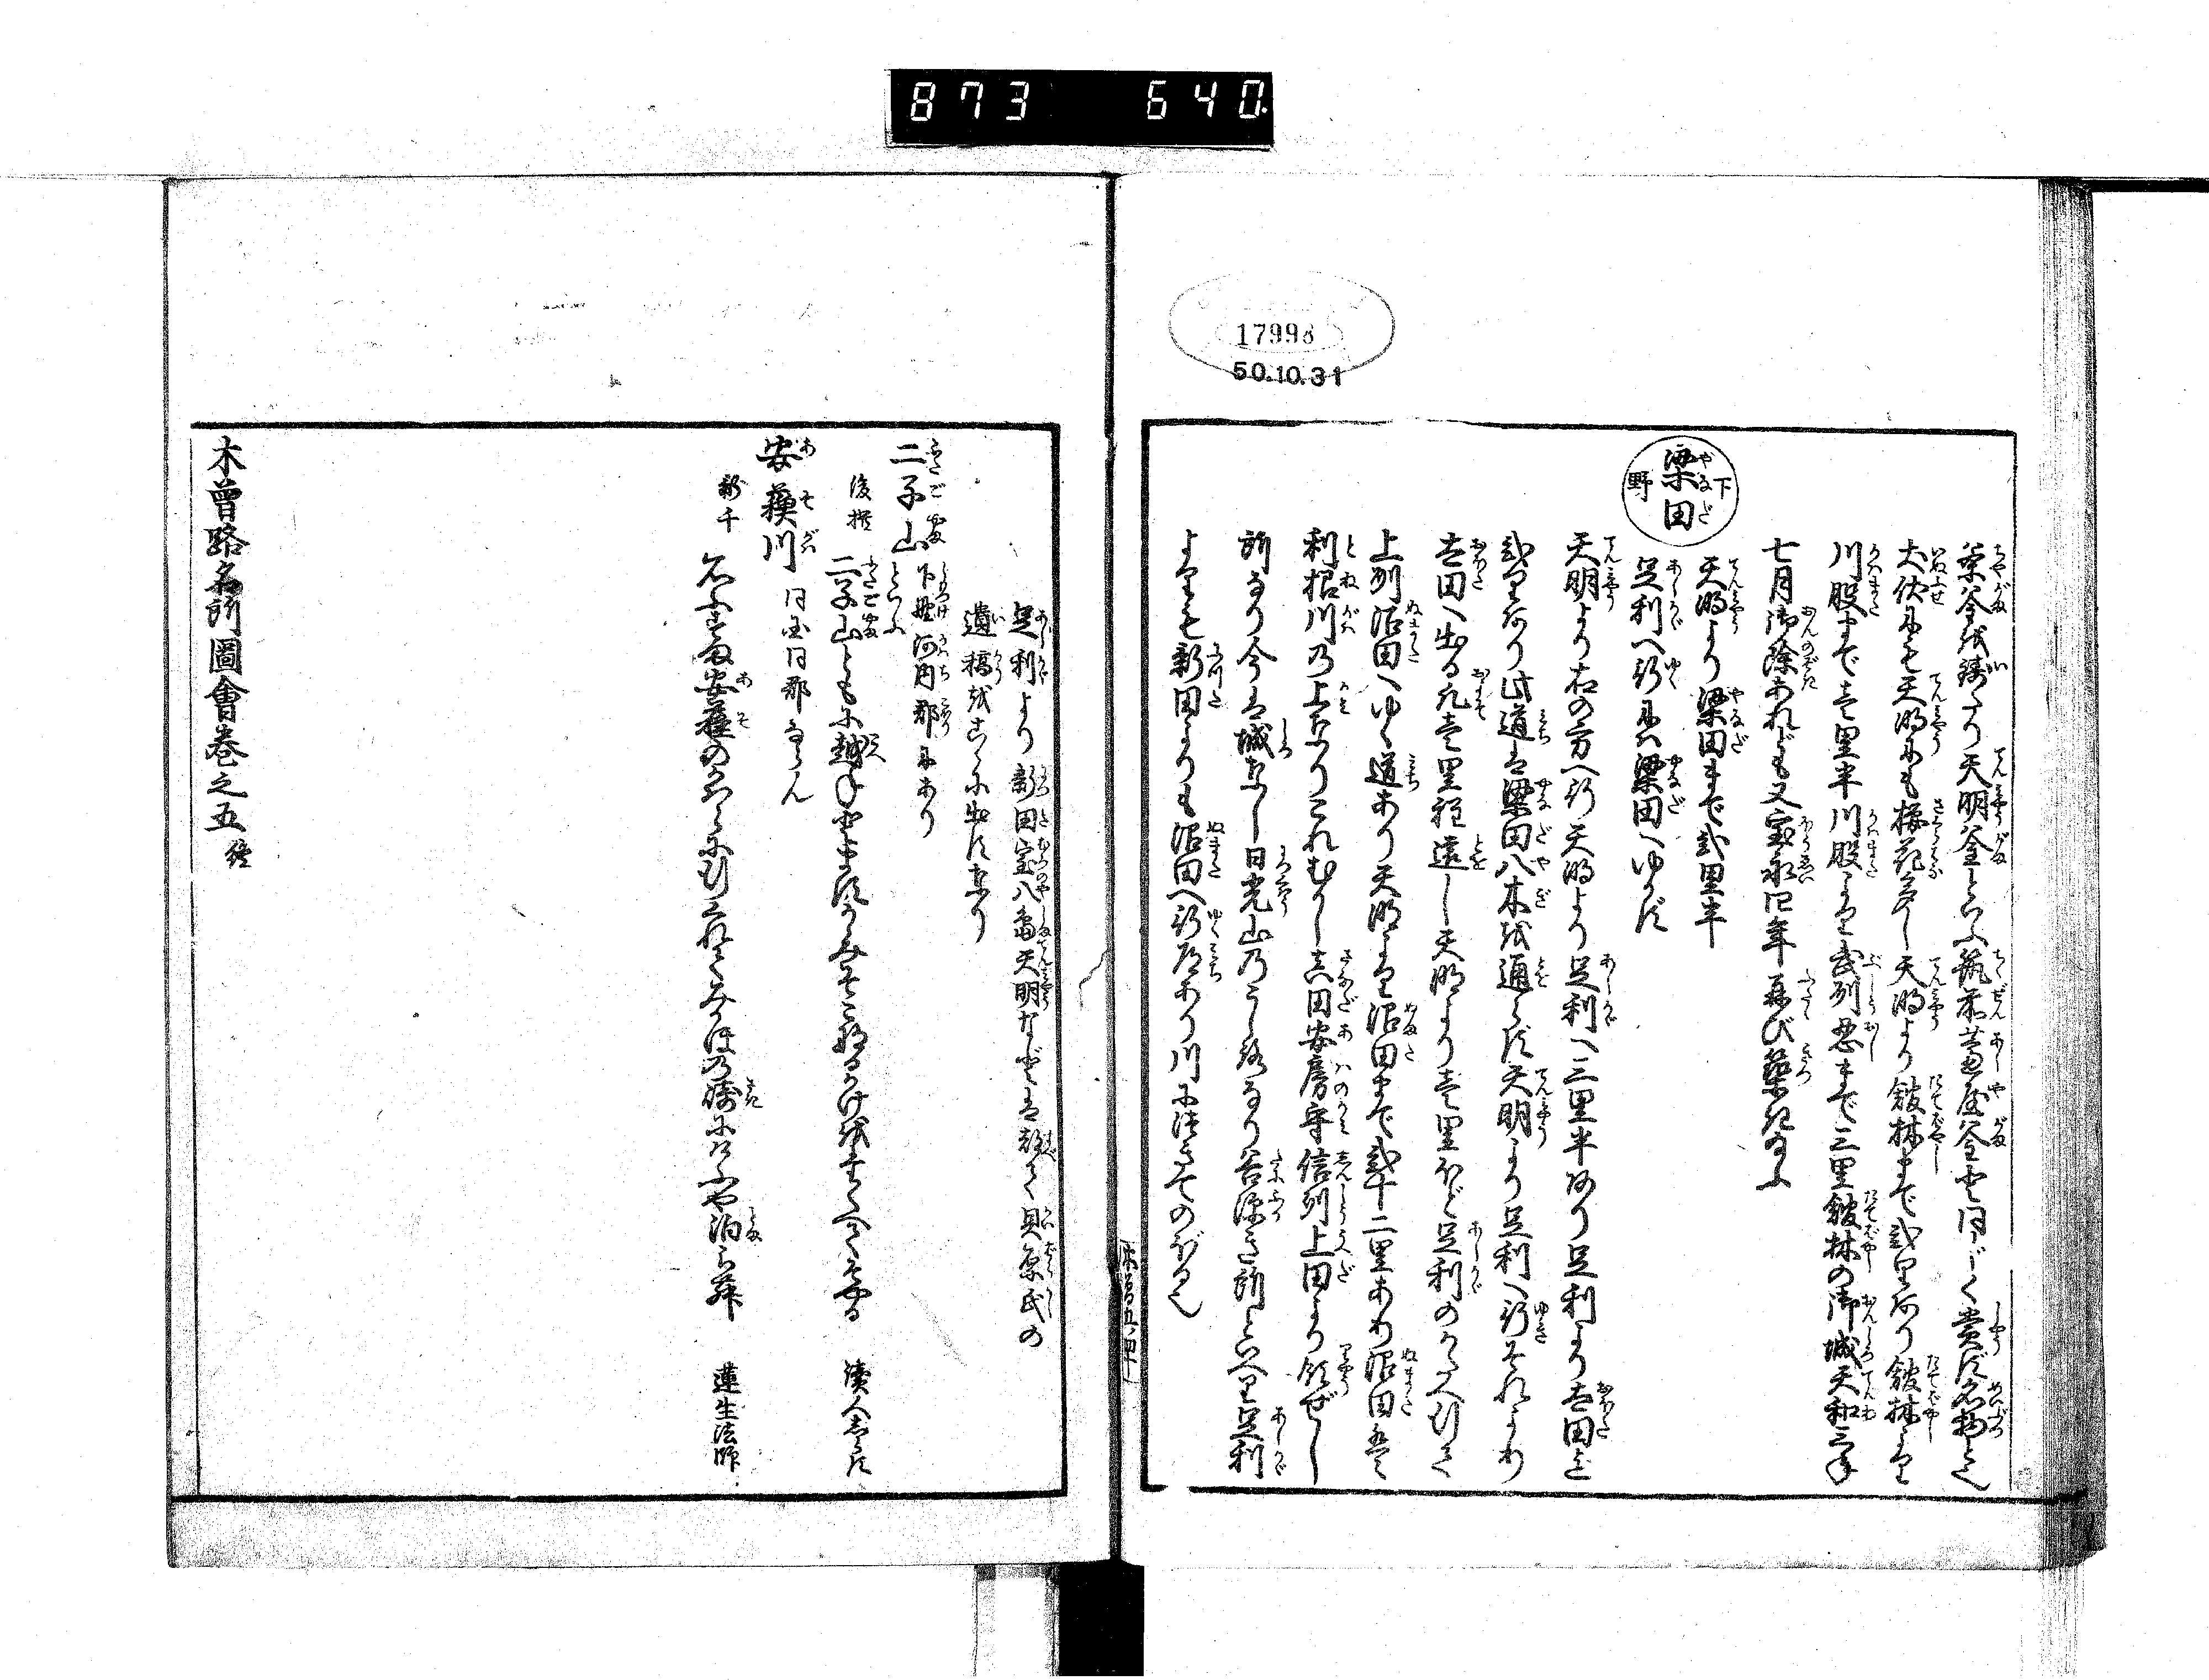 873 640
17998
50.10.31
茶釜を鋳たり天明釜といふ筑前芦屋釜と同じく賞す名物とす
犬伏にも天明にも桜花多し天明より館林まで弐里あり館林より
川股まで壱里半川股より武州忍まで三里館林の御城天和三年
七月御除あれども又宝永四年再び築給ふ
下野 梁田
天明より梁田まで弐里半
足利へ行には梁田へゆかず
天明より右の方へ行天明より足利へ三里半あり足利より太田迄
弐里あり此道は梁田八木を通らず天明より足利へ行それより
太田へ出る凡壱里程遠し天明より壱里ほど足利のかたへ行て
上州沼田へゆく道あり天明より沼田まで弐十二里あり沼田は
利根川の上なりこれむかし真田安房守信州上田より領ぜし
所なり今は城なし日光山のうしろなり谷深き所といへり足利
よりも新田よりも沼田へ行道あり川に津きてのぼる也
木曽五ノ四十一
足利より新田室八島天明などは都て貝原氏の
遺稿をこゝに出すなり
二子山 下野河内郡にあり
といふ
後撰 二子山ともに越ねどます かゞみそこなるかげをたぐへてぞやる 読人しらず
安蘓川 同国同郡ならん
新千 蓮生法師
木曽路名所圖會巻之五終